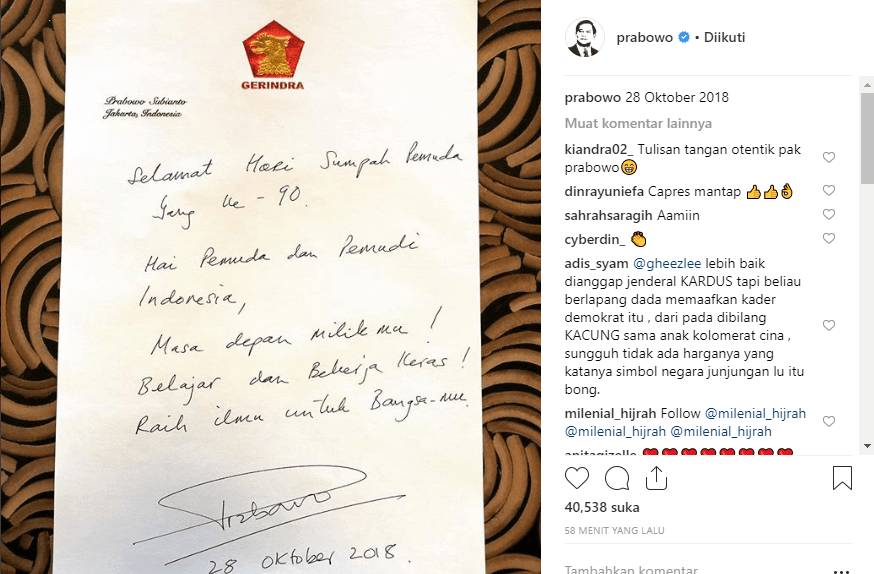 GERINDRA
Prabowo Subianto
Jakarta, Indonesia
Selamat Hari Sumpah Pemuda
yang ke-90.
Hai Pemuda dan Pemudi
Indonesia,
Masa depan milikmu!
Belajar dan Bekerja Keras!
Raih ilmu untuk Bangsa-mu.
Prabowo
28 Oktober 2018.
prabowo • Diikuti
prabowo 28 Oktober 2018
Muat komentar lainnya
kiandra02_ Tulisan tangan otentik pak
prabowo😁
dinrayuniefa Capres mantap 👍👍👌
sahrahsaragih Aamiin
cyberdin_ 👏
adis_syam @gheezlee lebih baik
dianggap jenderal KARDUS tapi beliau
berlapang dada memaafkan kader
demokrat itu , dari pada dibilang
KACUNG sama anak kolomerat cina ,
sungguh tidak ada harganya yang
katanya simbol negara junjungan lu itu
bong.
milenial_hijrah Follow @milenial_hijrah
@milenial_hijrah @milenial_hijrah
anitagizelle ❤❤❤❤❤❤❤❤
40,538 suka
58 MENIT YANG LALU
Tambahkan komentar